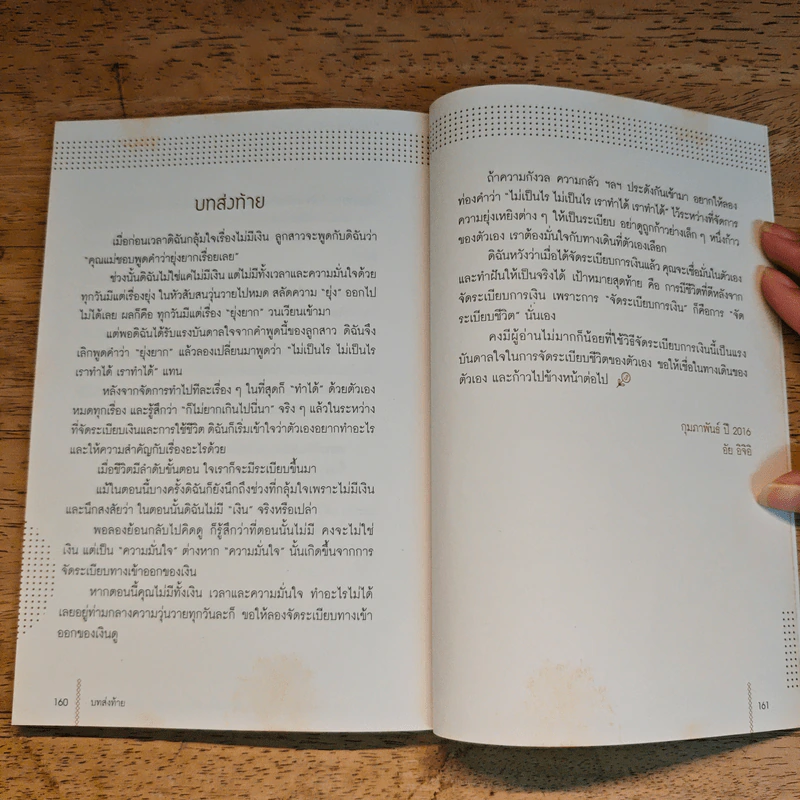 บทส่งท้าย
เมื่อก่อนเวลาดิฉันกลุ้มใจเรื่องไม่มีเงิน ลูกสาวจะพูดกับดิฉันว่า
“คุณแม่ชอบพูดคำว่ายุ่งยากเรื่อยเลย”
ช่วงนั้นดิฉันไม่ใช่แค่ไม่มีเงิน แต่ไม่มีทั้งเวลาและความมั่นใจด้วย
ทุกวันมีแต่เรื่องยุ่ง ในหัวสับสนวุ่นวายไปหมด สลัดความ “ยุ่ง” ออกไป
ไม่ได้เลย ผลก็คือ ทุกวันมีแต่เรื่อง “ยุ่งยาก” วนเวียนเข้ามา
แต่พอดิฉันได้รับแรงบันดาลใจจากคำพูดนี้ของลูกสาว ดิฉันจึง
เลิกพูดคำว่า “ยุ่งยาก” แล้วลองเปลี่ยนมาพูดว่า “ไม่เป็นไร ไม่เป็นไร
เราทำได้ เราทำได้” แทน
หลังจากจัดการทำไปทีละเรื่อง ๆ ในที่สุดก็ “ทำได้” ด้วยตัวเอง
หมดทุกเรื่อง และรู้สึกว่า “ก็ไม่ยากเกินไปนี่นา” จริง ๆ แล้วในระหว่าง
ที่จัดระเบียบเงินและการใช้ชีวิต ดิฉันก็เริ่มเข้าใจว่าตัวเองอยากทำอะไร
และให้ความสำคัญกับเรื่องอะไรด้วย
เมื่อชีวิตมีลำดับขั้นตอน ใจเราก็จะมีระเบียบขึ้นมา
แม้ในตอนนี้บางครั้งดิฉันก็ยังนึกถึงช่วงที่กลุ้มใจเพราะไม่มีเงิน
และนึกสงสัยว่า ในตอนนั้นดิฉันไม่มี “เงิน” จริงหรือเปล่า
พอลองย้อนกลับไปคิดดู ก็รู้สึกว่าที่ตอนนั้นไม่มี คงจะไม่ใช่
เงิน แต่เป็น “ความมั่นใจ” ต่างหาก “ความมั่นใจ” นั้นเกิดขึ้นจากการ
จัดระเบียบทางเข้าออกของเงิน
หากตอนนี้คุณไม่มีทั้งเงิน เวลาและความมั่นใจ ทำอะไรไม่ได้
เลยอยู่ท่ามกลางความวุ่นวายทุกวันละก็ ขอให้ลองจัดระเบียบทางเข้า
ออกของเงินดู
160 บทส่งท้าย
ถ้าความกังวล ความกลัว ฯลฯ ประดังกันเข้ามา อยากให้ลอง
ท่องคำว่า “ไม่เป็นไร ไม่เป็นไร เราทำได้ เราทำได้” ไว้ระหว่างที่จัดการ
ความยุ่งเหยิงต่าง ๆ ให้เป็นระเบียบ อย่าดูถูกก้าวอย่างเล็ก ๆ หนึ่งก้าว
ของตัวเอง เราต้องมั่นใจกับทางเดินที่ตัวเองเลือก
ดิฉันหวังว่าเมื่อได้จัดระเบียบการเงินแล้ว คุณจะเชื่อมั่นในตัวเอง
และทำฝันให้เป็นจริงได้ เป้าหมายสุดท้าย คือ การมีชีวิตที่ดีหลังจาก
จัดระเบียบการเงิน เพราะการ “จัดระเบียบการเงิน” ก็คือการ “จัด
ระเบียบชีวิต” นั่นเอง
คงมีผู้อ่านไม่มากก็น้อยที่ใช้วิธีจัดระเบียบการเงินนี้เป็นแรง
บันดาลใจในการจัดระเบียบชีวิตของตัวเอง ขอให้เชื่อในทางเดินของ
ตัวเอง และก้าวไปข้างหน้าต่อไป
กุมภาพันธ์ ปี 2016
อัย อิจิอิ
161